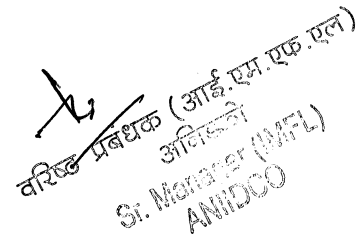 वरिष्ठ प्रबंधक (आई.एम.एफ.एल)
अनिडको
Sr. Manager (IMFL)
ANIIDCO